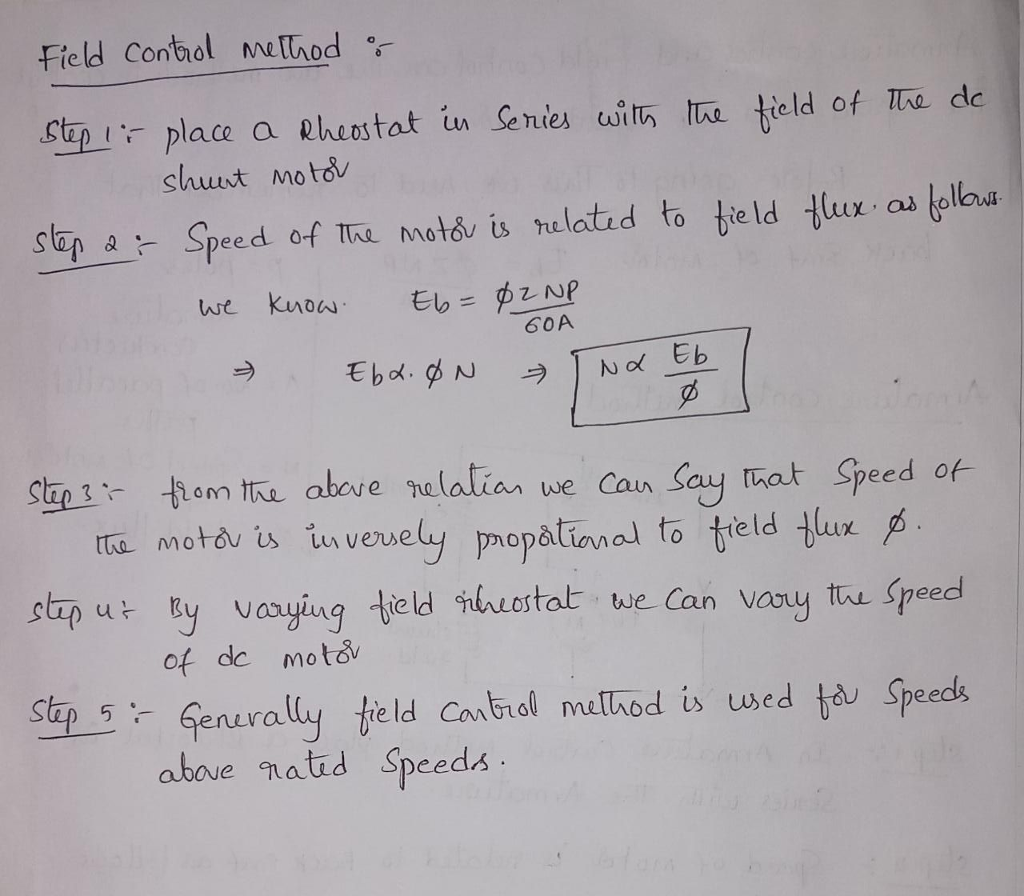 Field Control method :-
Step 1 :- place a Rheostat in Series with the field of the dc
shunt motor
Step 2 :- Speed of the motor is related to field flux. as follows.
we know. Eb = ϕZNP/60A
⇒ Eb α. ϕN ⇒ N α Eb/ϕ
Step 3 :- from the above relation we can Say that Speed of
the motor is inversely proportional to field flux ϕ.
step 4 :- By varying field rheostat we can vary the Speed
of dc motor
Step 5 :- Generally field Control method is used for Speeds
above rated Speeds.